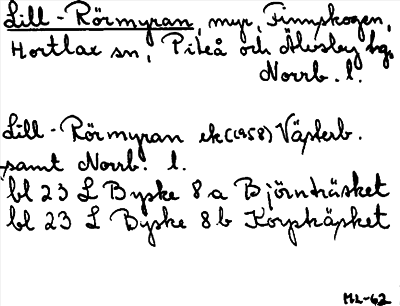 Lill-Rörmyran, myr, Finnskogen,
Hortlax sn, Piteå och Älvsby hg,
Norrb. l.
Lill-Rörmyran ek (1958) Västerb.
samt Norrb. l.
bl 23 L Byske 8 a Björnträsket
bl 23 L Byske 8 b Korpträsket
ML-62